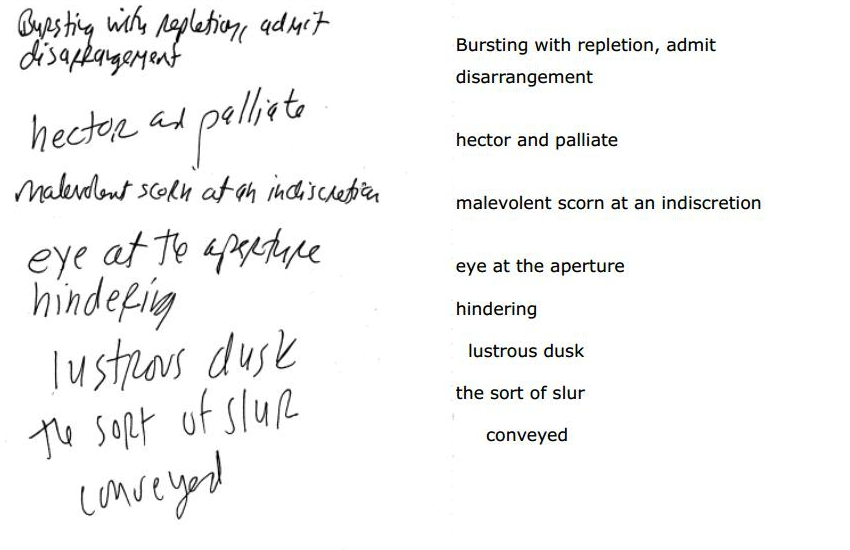 Bursting with repletion, admit
disarrangement
hector and palliate
malevolent scorn at an indiscretion
eye at the aperture
hindering
lustrous dusk
the sort of slur
conveyed
Bursting with repletion, admit
disarrangement
hector and palliate
malevolent scorn at an indiscretion
eye at the aperture
hindering
lustrous dusk
the sort of slur
conveyed